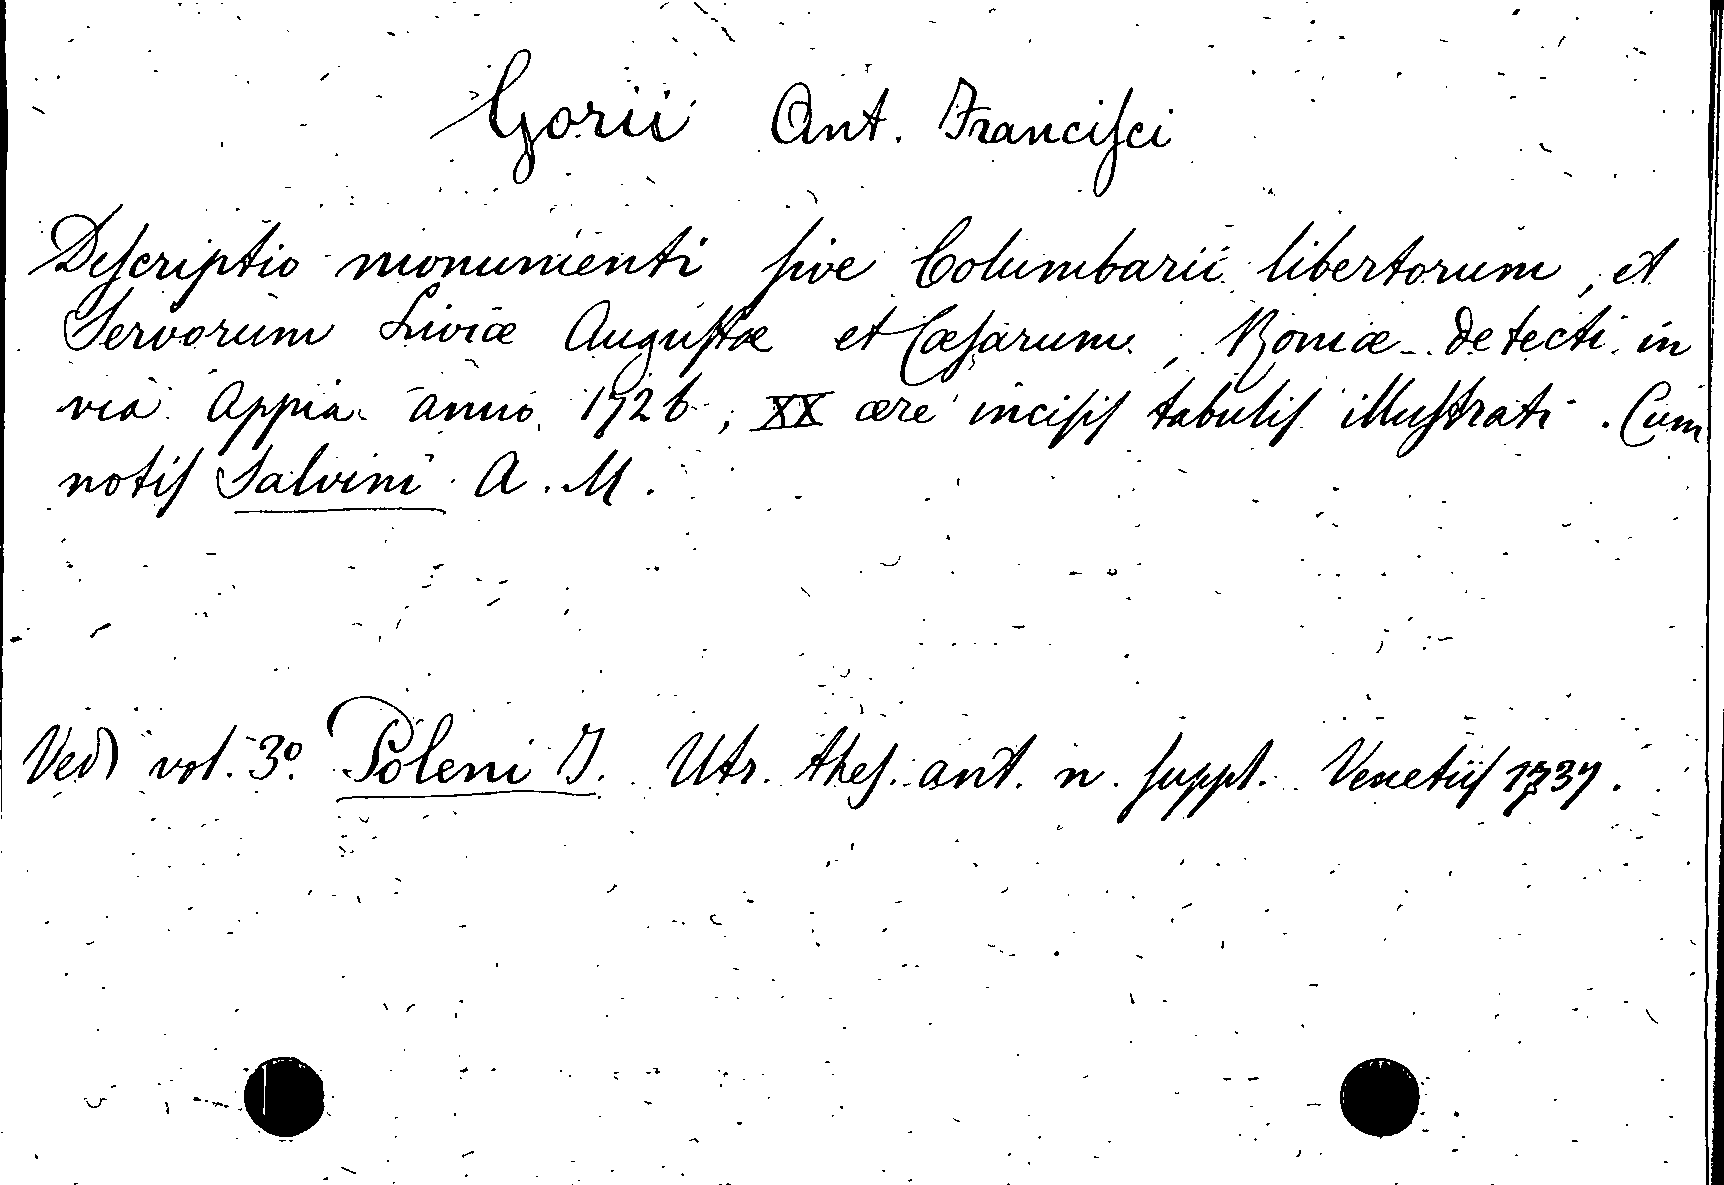 Gorii Ant. Francisci
Descriptio monumenti sive Columbarii libertorum, et
Servorum Liviæ Augustæ et Cæsarum, Romæ detecti in
via Appia anno 1726, XX ære incisis tabulis illustrati. Cum
notis Salvini A. M.
Vedi vol. 3º. Poleni J. Utr. thes. ant. n. suppl. Venetiis 1737.